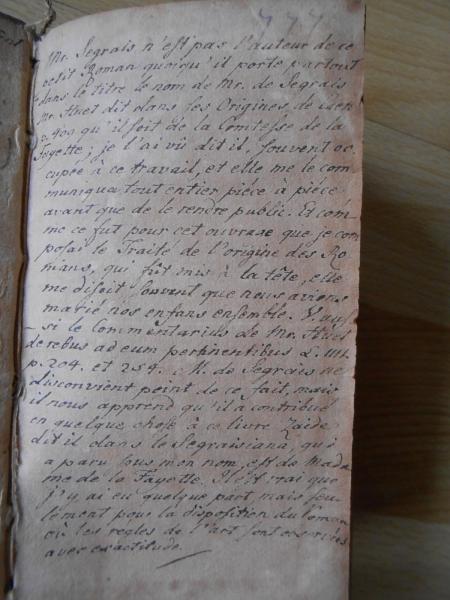 Mr. Segrais n'est pas l'auteur de ce
petit Roman quoiqu'il porte partout
dans le titre le nom de Mr. de Segrais
Mr. Huet dit dans les Origines de Caen
p. 409 qu'il soit de la Comtesse de la
Fayette; je l'ai vû dit il, souvent oc-
cupée à ce travail, et elle me le com-
muniqua tout entier piéce à piéce
avant que de le rendre public. Et com-
me ce fut pour cet ouvrage que je com
posai le Traité de l'origine des Ro-
mans, qui fut mis à la tête, elle
me disoit souvent que nous avions
marié nos enfans ensemble. V. aus-
si le Commentarius de Mr. Huet
de rebus ad eum pertinentibus L. IIII.
p. 204. et 254. M. de Segrais ne
disconvient point de ce fait, mais
il nous apprend qu'il à contribué
en quelque chose à ce livre. Zaide
dit il dans le Segraisiana, qui
a paru sous mon nom, est de Mada
me de la Fayette. Il est vrai que
j'y ai eu quelque part mais seu-
lement pour la disposition du Roman
où les regles de l'art sont observées
avec exactitude.